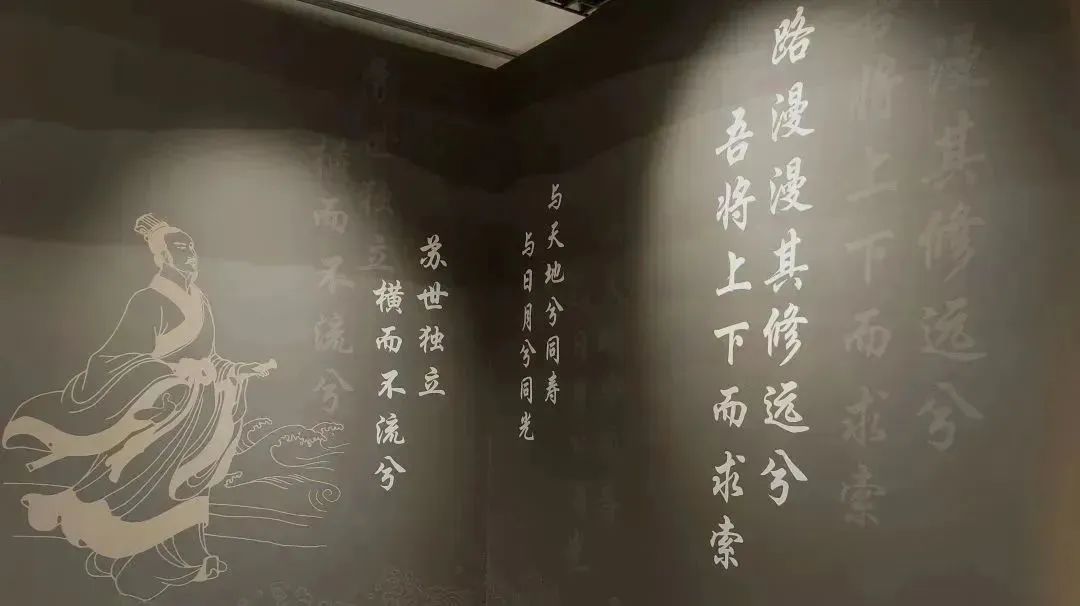 路漫漫其修远兮
吾将上下而求索
与天地兮同寿
与日月兮同光
苏世独立
横而不流兮
漫其修远兮
将上下而求索
独立
而不流兮